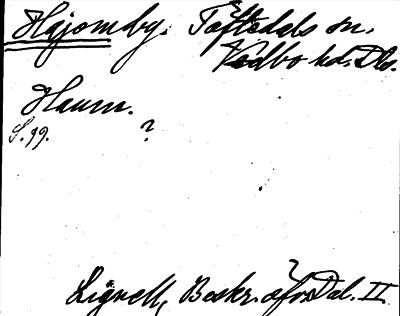 Håjomby. Töftedals sn.
Vedbo hd. Dls.
Hamn.
S. 99. ?
Lignell, Beskr. öfv. Dal. II